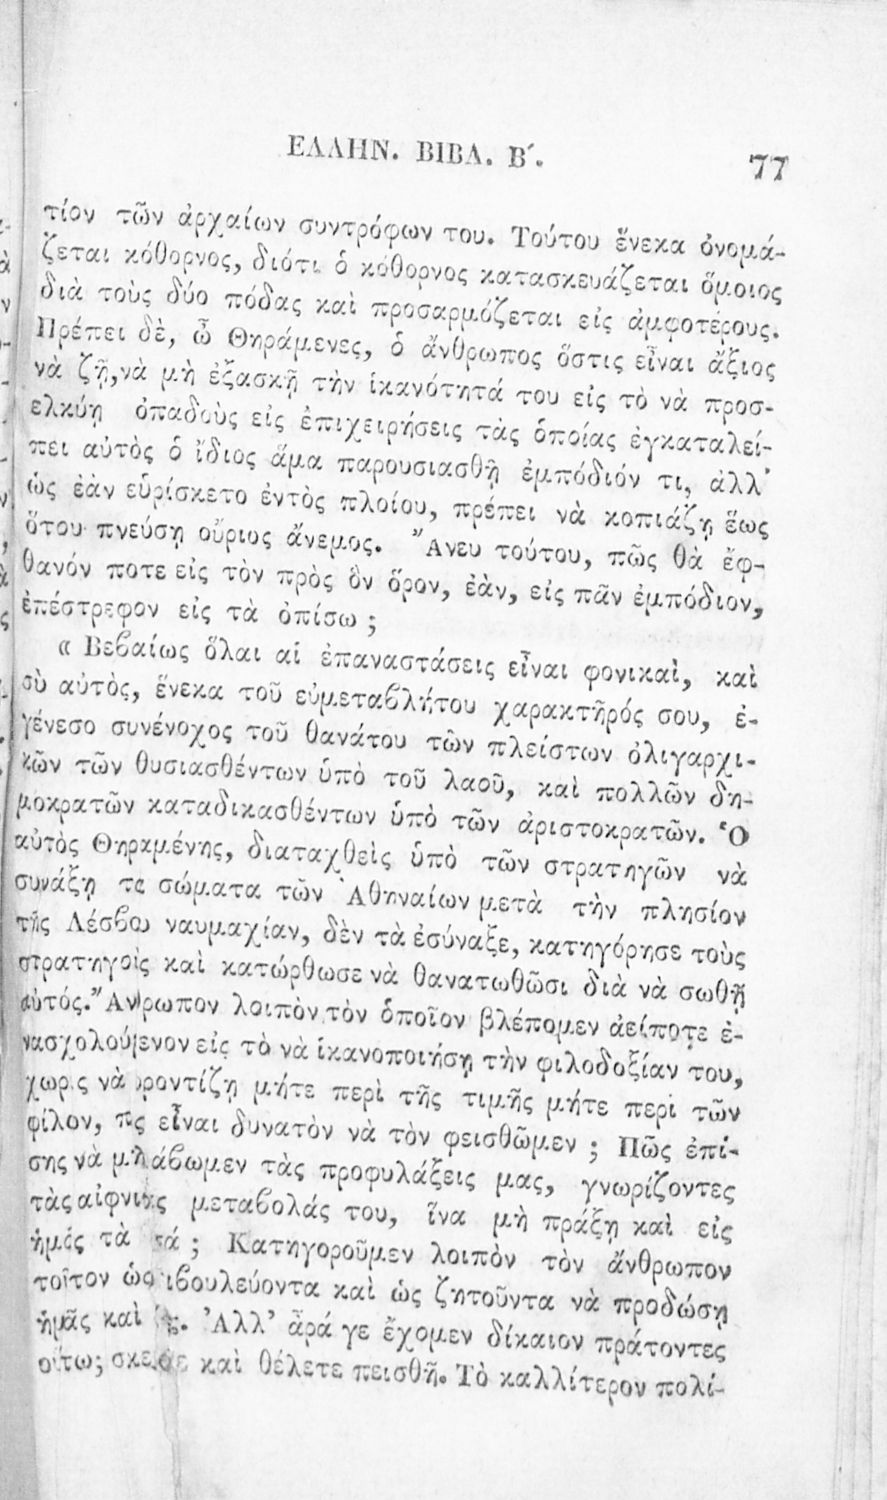 ΕΛΛΗΝ. ΒΙΒΛ. Β΄.
77
τίον τῶν ἀρχαίων συντρόφων του. Τούτου ἕνεκα ὀνομά-
ζεται κόθορνος, διότι ὁ κόθορνος κατασκευάζεται ὅμοιος
διὰ τοὺς δύο πόδας καὶ προσαρμόζεται εἰς ἀμφοτέρους.
Πρέπει δὲ, ὦ Θηράμενες, ὁ ἄνθρωπος ὅστις εἶναι ἄξιος
νὰ ζῇ, νὰ μὴ ἐξασκῇ τὴν ἱκανότητά του εἰς τὸ νὰ προσ-
ελκύῃ ὀπαδοὺς εἰς ἐπιχειρήσεις τὰς ὁποίας ἐγκαταλεί-
πει αὐτὸς ὁ ἴδιος ἅμα παρουσιασθῇ ἐμπόδιόν τι, ἀλλ’
ὡς ἐὰν εὑρίσκετο ἐντὸς πλοίου, πρέπει νὰ κοπιάζῃ ἕως
ὅτου πνεύσῃ οὔριος ἄνεμος. Ἄνευ τούτου, πῶς θὰ ἔφ-
θανόν ποτε εἰς τὸν πρὸς ὃν ὅρον, ἐὰν, εἰς πᾶν ἐμπόδιον,
ἐπέστρεφον εἰς τὰ ὀπίσω ;
« Βεβαίως ὅλαι αἱ ἐπαναστάσεις εἶναι φονικαὶ, καὶ
σὺ αὐτὸς, ἕνεκα τοῦ εὐμεταβλήτου χαρακτῆρός σου, ἐ-
γένεσο συνένοχος τοῦ θανάτου τῶν πλείστων ὀλιγαρχι-
κῶν τῶν θυσιασθέντων ὑπὸ τοῦ λαοῦ, καὶ πολλῶν δη-
μοκρατῶν καταδικασθέντων ὑπὸ τῶν ἀριστοκρατῶν. Ὁ
αὐτὸς Θηραμένης, διαταχθεὶς ὑπὸ τῶν στρατηγῶν νὰ
συνάξῃ τὰ σώματα τῶν Ἀθηναίων μετὰ τὴν πλησίον
τῆς Λέσβου ναυμαχίαν, δὲν τὰ ἐσύναξε, κατηγόρησε τοὺς
στρατηγοὺς καὶ κατώρθωσε νὰ θανατωθῶσι διὰ νὰ σωθῇ
αὐτός. Ἄνθρωπον λοιπὸν τὸν ὁποῖον βλέπομεν ἀείποτε ἐ-
νασχολούμενον εἰς τὸ νὰ ἱκανοποιήσῃ τὴν φιλοδοξίαν του,
χωρὶς νὰ φροντίζῃ μήτε περὶ τῆς τιμῆς μήτε περὶ τῶν
φίλον, πῶς εἶναι δυνατὸν νὰ τὸν φεισθῶμεν ; Πῶς ἐπί-
σης νὰ μὴ λάβωμεν τὰς προφυλάξεις μας, γνωρίζοντες
τὰς αἰφνιους μεταβολάς του, ἵνα μὴ πράξῃ καὶ εἰς
ἡμᾶς τὰ ; Κατηγοροῦμεν λοιπὸν τὸν ἄνθρωπον
τοῦτον ὡς ἐπιβουλεύοντα καὶ ὡς ζητοῦντα νὰ προδώσῃ
ἡμᾶς καὶ Ἀλλ’ ἆρά γε ἔχομεν δίκαιον πράτοντες
οὕτω; καὶ θέλετε πεισθῆ. Τὸ καλλίτερον πολί-